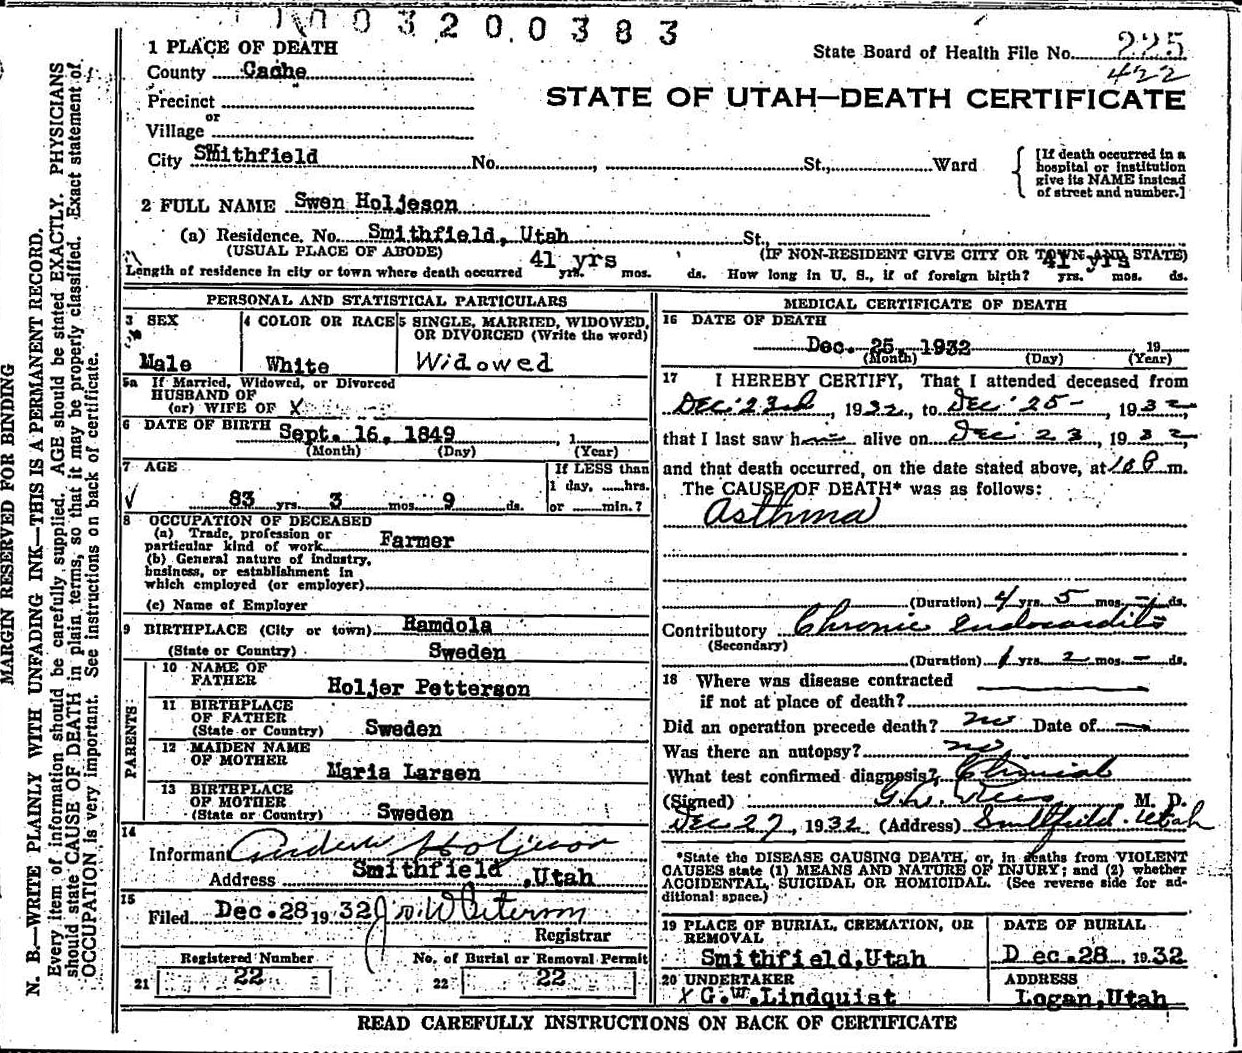 0 0 3 2 0 0 3 8 3
1 PLACE OF DEATH
State Board of Health File No. 225
County Cache
422
STATE OF UTAH—DEATH CERTIFICATE
Precinct
or
Village
City Smithfield No. , St., Ward
[If death occurred in a hospital or institution give its NAME instead of street and number.]
2 FULL NAME Swen Holjeson
(a) Residence. No. Smithfield, Utah St.
(USUAL PLACE OF ABODE) (IF NON-RESIDENT GIVE CITY OR TOWN AND STATE)
Length of residence in city or town where death occurred 41 yrs yrs. mos. ds. How long in U. S., if of foreign birth? 41 yrs yrs. mos. ds.
PERSONAL AND STATISTICAL PARTICULARS
3 SEX
Male
4 COLOR OR RACE
White
5 SINGLE, MARRIED, WIDOWED, OR DIVORCED (Write the word)
Widowed
5a If Married, Widowed, or Divorced
HUSBAND OF
(or) WIFE OF X
6 DATE OF BIRTH Sept. 16, 1849 , 1
(Month) (Day) (Year)
7 AGE
83 yrs. 3 mos. 9 ds.
If LESS than
1 day, ......hrs.
or ......min.?
8 OCCUPATION OF DECEASED
(a) Trade, profession or
particular kind of work Farmer
(b) General nature of industry,
business, or establishment in
which employed (or employer)
(c) Name of Employer
9 BIRTHPLACE (City or town) Hamdola
(State or Country) Sweden
PARENTS
10 NAME OF
FATHER Holjer Petterson
11 BIRTHPLACE
OF FATHER
(State or Country) Sweden
12 MAIDEN NAME
OF MOTHER Maria Larsen
13 BIRTHPLACE
OF MOTHER
(State or Country) Sweden
14
Informan Andrew Holjeson
Address Smithfield ,Utah
15
Filed Dec. 28 19 32
Registrar
Registered Number
21 22
No. of Burial or Removal Permit
22 22
MEDICAL CERTIFICATE OF DEATH
16 DATE OF DEATH
Dec. 25, 1932 19
(Month) (Day) (Year)
17 I HEREBY CERTIFY, That I attended deceased from
Dec 23rd, 1932, to Dec 25-, 1932,
that I last saw h alive on Dec 23, 1932,
and that death occurred, on the date stated above, at 10 P m.
The CAUSE OF DEATH* was as follows:
Asthma
(Duration) 4 yrs. 5 mos. - ds.
Contributory Chronic Endocarditis
(Secondary)
(Duration) 1 yrs. 2 mos. - ds.
18 Where was disease contracted
if not at place of death?
Did an operation precede death? no Date of —
Was there an autopsy? no
What test confirmed diagnosis? Clinical
(Signed) G.L. Rees M. D.
Dec 27, 1932 (Address) Smithfield. Utah
*State the DISEASE CAUSING DEATH, or, in deaths from VIOLENT
CAUSES state (1) MEANS AND NATURE OF INJURY; and (2) whether
ACCIDENTAL, SUICIDAL OR HOMICIDAL. (See reverse side for ad-
ditional space.)
19 PLACE OF BURIAL, CREMATION, OR
REMOVAL
Smithfield,Utah
DATE OF BURIAL
D ec.28 1932
20 UNDERTAKER
X G.W. Lindquist
ADDRESS
Logan,Utah
READ CAREFULLY INSTRUCTIONS ON BACK OF CERTIFICATE
MARGIN RESERVED FOR BINDING
N. B.—WRITE PLAINLY WITH UNFADING INK—THIS IS A PERMANENT RECORD.
Every item of information should be carefully supplied. AGE should be stated EXACTLY. PHYSICIANS
should state CAUSE OF DEATH in plain terms, so that it may be properly classified. Exact statement of
OCCUPATION is very important. See instructions on back of certificate.